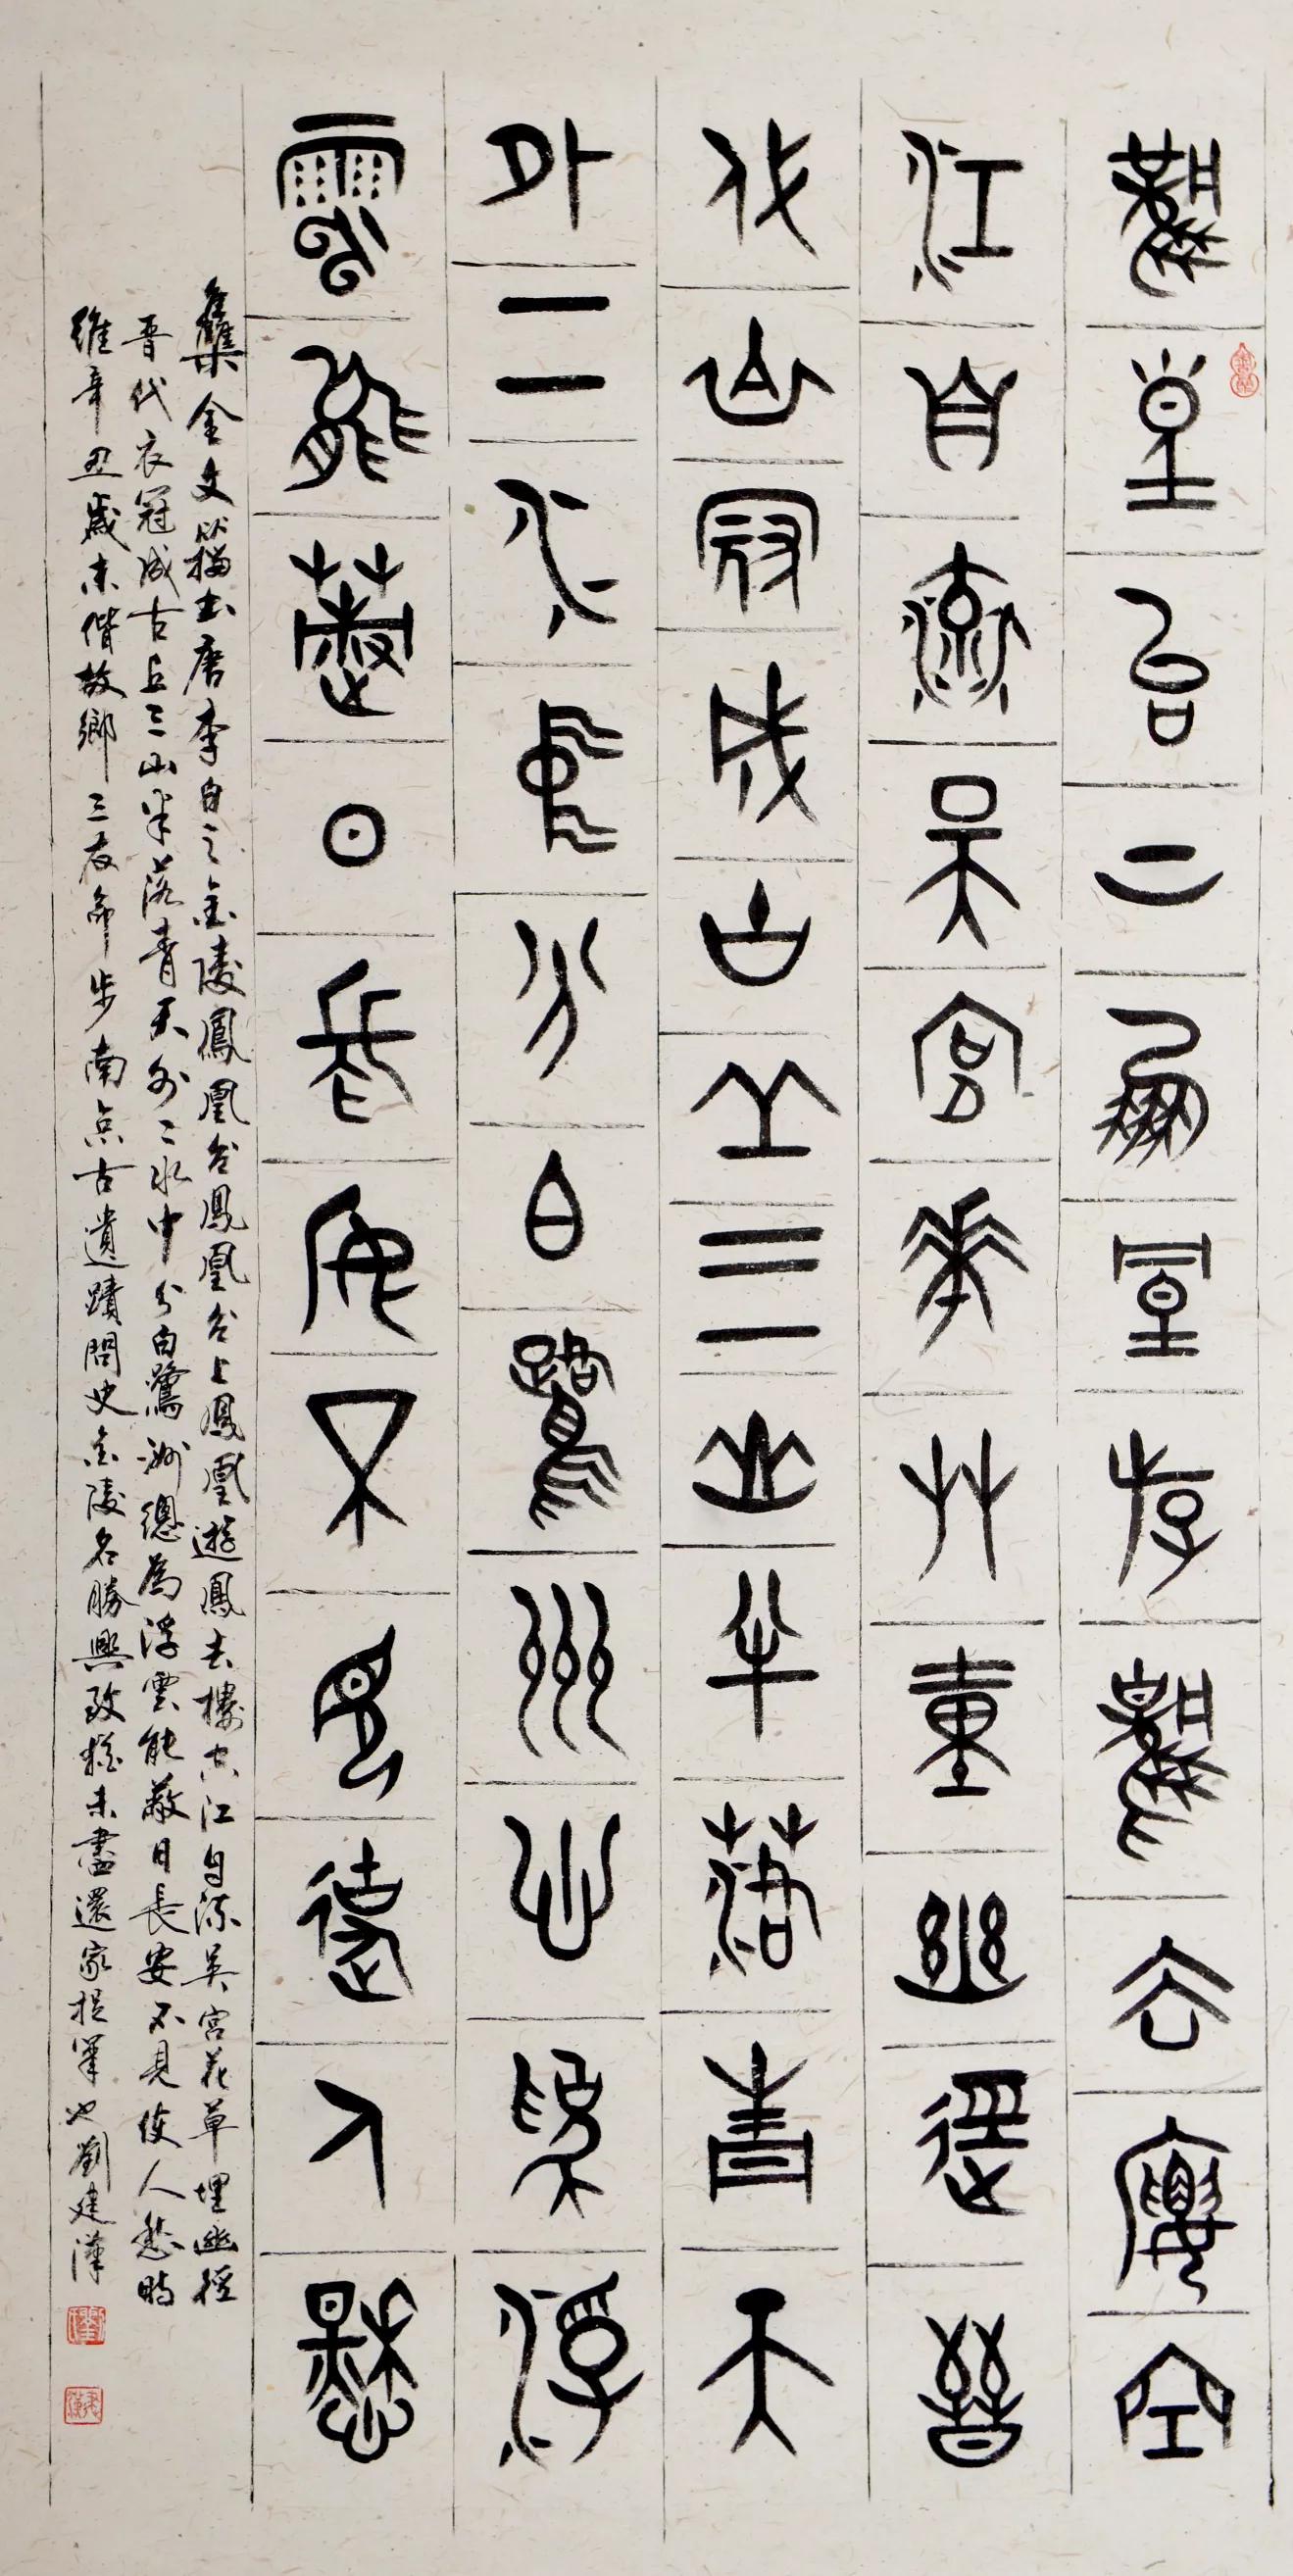 鳳皇台上鳳皇斿鳳去樓空
江自流吳宮華艸埋幽徑晉
代衣冠成古丘三山半落青天
外二水中分白鷺州總為浮
雲能蔽日長安不見使人愁
雧金文籀书唐李白之金陵鳳凰台鳳凰台上鳳凰遊鳳去樓空江自流吳宮花草埋幽徑
晉代衣冠成古丘三山半落青天外二水中分白鷺洲總為浮雲能蔽日長安不見使人愁時
維辛丑歲末偕故鄉三友命步南京古遺蹟問史金陵名勝興致猶未盡還家提筆也劉建漢